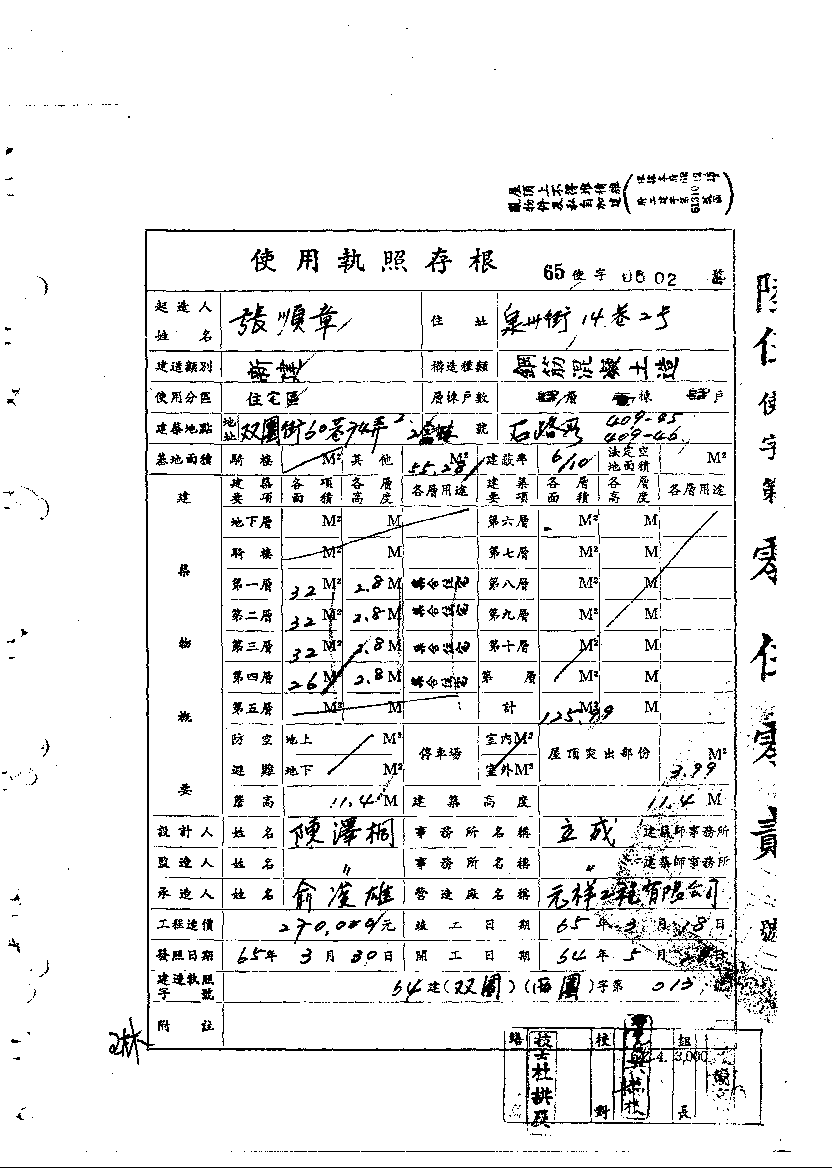 屋頂上不得堆積雜
物件及私自加建
使用執照存根
65使字 0502 號
起造人姓名 張順章 住址 泉州街14巷2号
建造類別 新建 構造種類 鋼筋混凝土造
使用分區 住宅區 層棟戶數 層 棟 戶
建築地點 地址 双園街60巷74弄 號 409-45
409-46
基地面積 騎樓 M² 其他 55.28 M² 建蔽率 6/10 法定空地面積 M²
建築物概要
建築要項 各項面積 各層高度 各層用途 建築要項 各層面積 各層高度 各層用途
地下層 M² M 第六層 M² M
騎樓 M² M 第七層 M² M
第一層 32 M² 2.8 M 集合住宅 第八層 M² M
第二層 32 M² 2.8 M 集合住宅 第九層 M² M
第三層 32 M² 2.8 M 集合住宅 第十層 M² M
第四層 26 M² 2.8 M 集合住宅 第 層 M² M
第五層 M² M 計 125.99 M² M
防空避難 地上 M² 停車場 室內M² 屋頂突出部份 3.99 M²
地下 M² 室外M²
簷高 11.4 M 建築高度 11.4 M
設計人 姓名 陳澤桐 事務所名稱 立成 建築師事務所
監造人 姓名 〃 事務所名稱 〃 建築師事務所
承造人 姓名 俞俊雄 營造廠名稱 元祥工程有限公司
工程造價 270,000元 竣工日期 65年3月18日
發照日期 65年3月30日 開工日期 64年5月 日
建造執照字號 64建(双園)(西園)字第 013
附註
校對 組長
陸伍使字第零伍零貳號